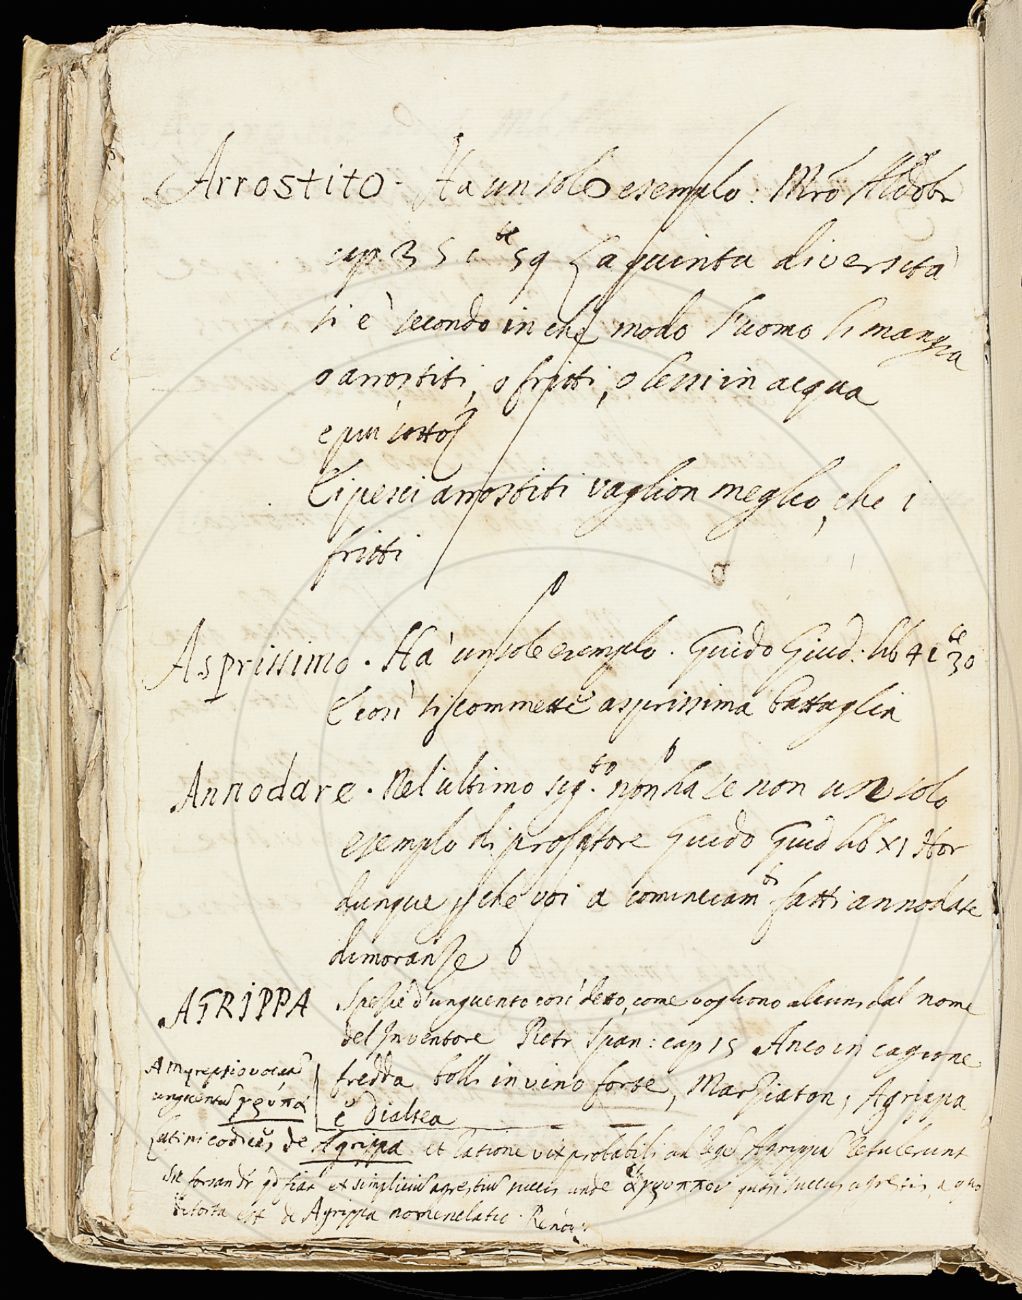 Arrostito. Ha un solo esemplo. Mro Aldobr
cap. 35 c te 59 La quinta diversità
si è secondo in che modo l'uomo li mangia
o arrostiti, o fritti, o lessi in acqua
e più sotto
E i pesci arrostiti vaglion meglio, che i
fritti
Asprissimo. Ha un solo esemplo. Guido Giud: lib 4 c te 30
E così si scommette asprissima battaglia
Annodare. Nel ultimo sig.to non ha se non un solo
esemplo di prosatore Guido Giud lib XI Hor
dunque perche voi a cominciam.to fatti annodate
dimoranze
AGRIPPA Spesie d'unguento così detto, come vogliono alcuni dal nome
del Inventore Pietr Span: cap 15 Anco in cagione
fredda bolli in vino forte, Marziaton, Agrippa
e Dialtea
Latini codices de Agrippa et ratione vix probabili ad Regem Agrippa retulerunt
quasi succus agrestis, a quo
de Agrippa nomenclatio. Renov: